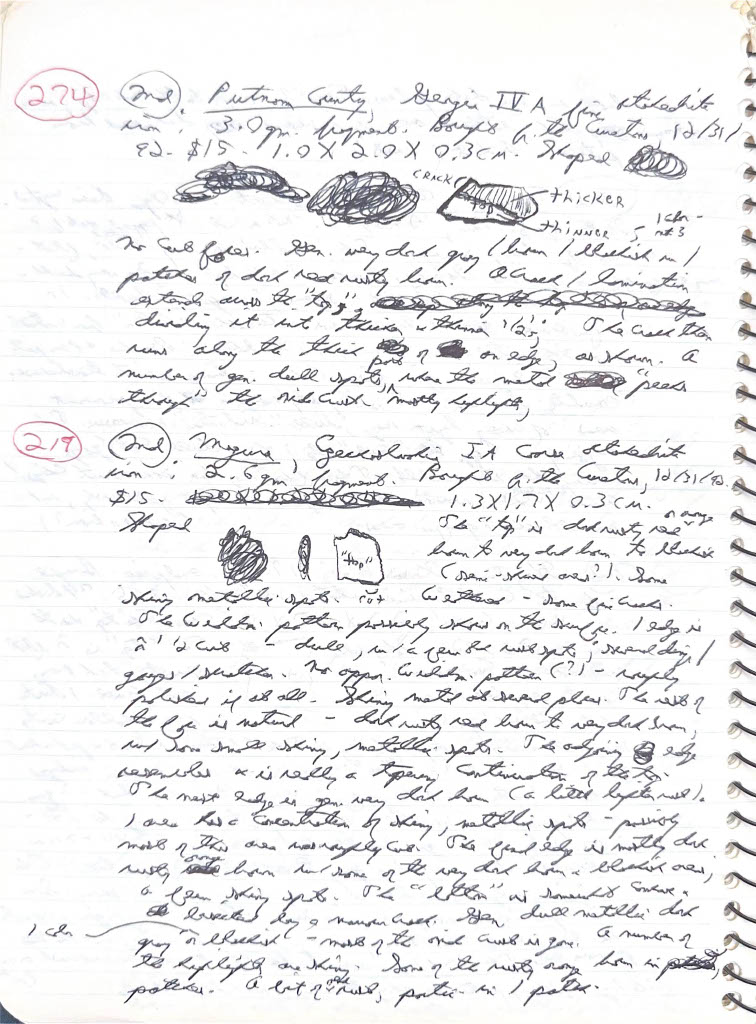 274 2nd. Putnam County, Georgia IVA fine octahedrite
iron; 3.0gm. fragment. Bought fr. the Curators, 12/31/
92. $15. 1.0 X 2.0 X 0.3 cm. Shaped
CRACK
top
thicker
thinner
1 cm -
No cut faces. Gen. very dark gray / brown / blackish w/
patches of dark red rusty brown. A crack / lamination
extends across the "top",
dividing it into thicker & thinner 1/2s. The crack then
runs along the thick part of on edge, as shown. A
number of gen. dull spots, where the metal "peeks
through" the oxid. crust, mostly highlights,
219 2nd Magura, Czechoslovakia IA Coarse octahedrite
iron; 2.6gm. fragment. Bought fr. the Curators, 12/31/92.
$15. 1.3 X 1.7 X 0.3 cm.
Shaped The "top" is dark rusty red or orange
"top" brown to very dark brown to blackish
(semi-shiny areas?). Some
shiny metallic spots. cut Weathered - some fine cracks.
The Widdm. pattern possibly shows on the surface. 1 edge is
a 1/2 cut - dull, w/ a few rust spots, several dings /
gouges / scratches. No appar. Widdm. pattern (?) - roughly
polished if at all. Shiny metal at several places. The rest of
the face is natural - dark rusty red brown to very dark brown,
w/ some small shiny, metallic spots. The adjoining edge
resembles & is really a tapering continuation of the top.
The next edge is gen. very dark brown (a little lighter red).
1 area has a concentration of shiny, metallic spots - possibly
most of this area was roughly cut. The final edge is mostly dark
rusty orange brown w/ some of the very dark brown & blackish areas,
a few shiny spots. The "bottom" is somewhat concave &
bisected by a narrow crack. Gen. dull metallic dark
1 cm gray or blackish - most of the oxid. crust is gone. A number of
the highlights are shiny. Some of the rusty orange brown in
patches. A bit of rust, partic. in 1 patch.